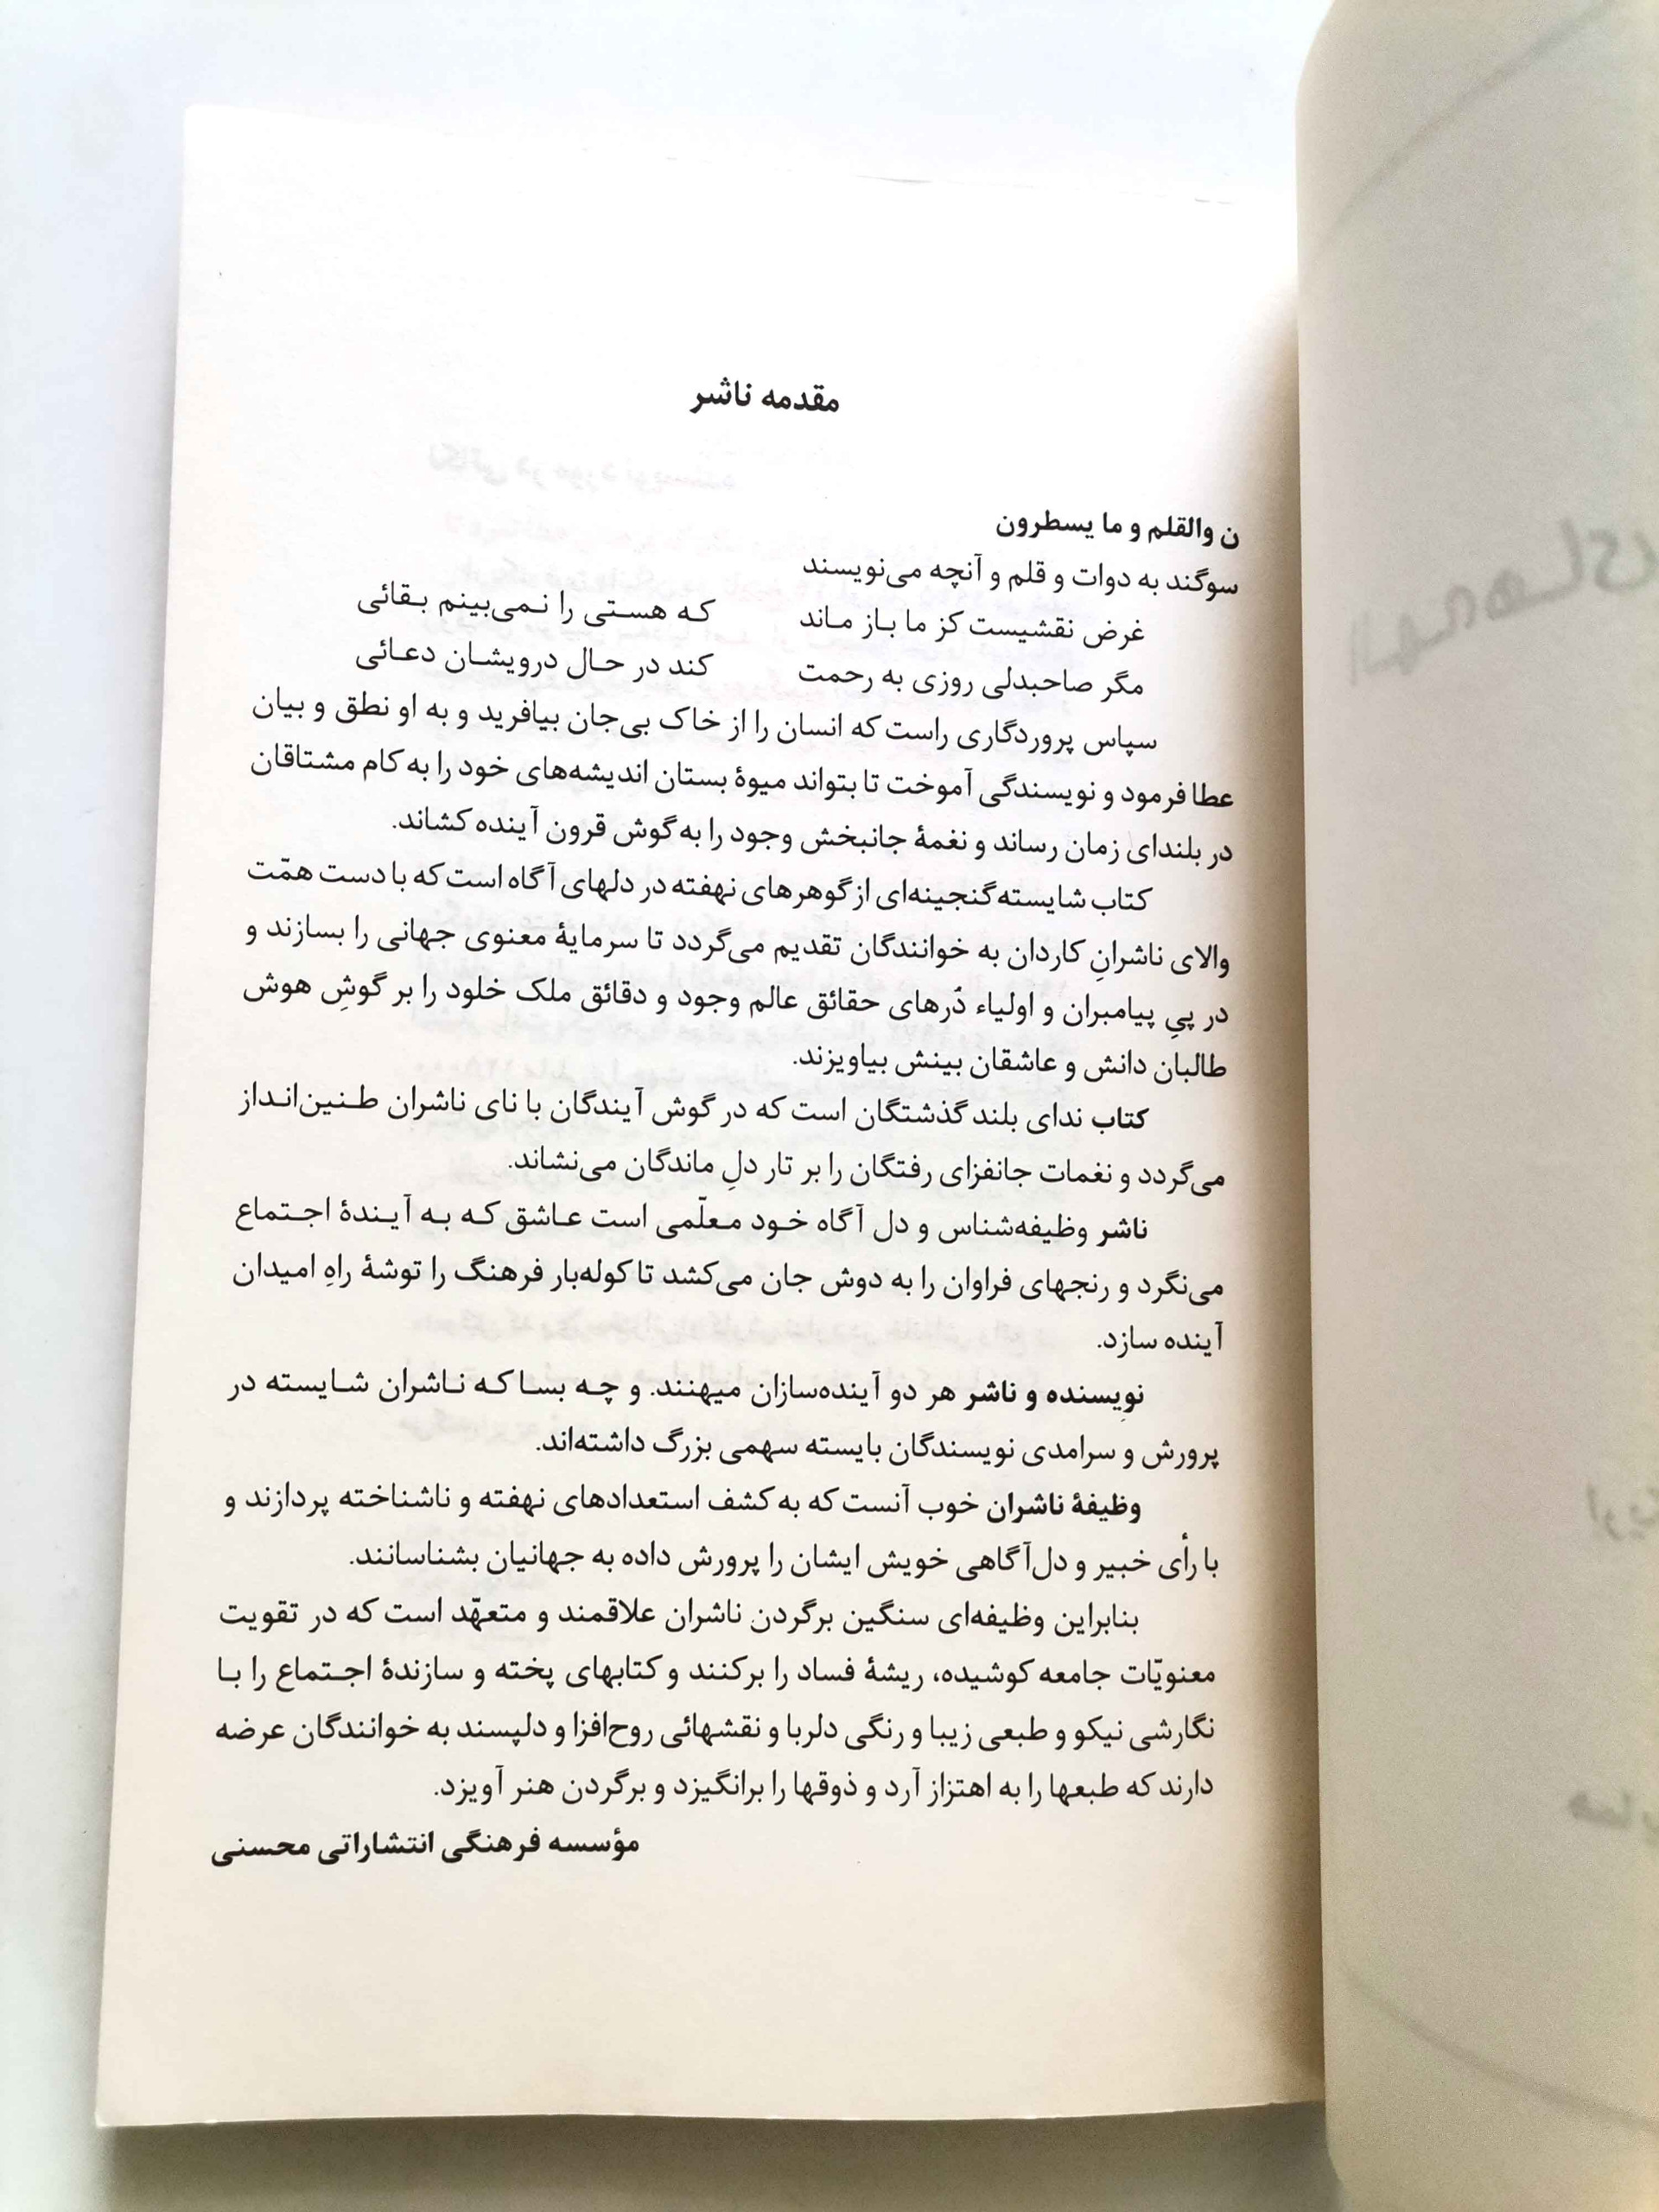 مقدمه ناشر
ن والقلم و ما یسطرون
سوگند به دوات و قلم و آنچه می‌نویسند
غرض نقشیست کز ما باز ماند که هستی را نمی‌بینم بقائی
مگر صاحبدلی روزی به رحمت کند در حال درویشان دعائی
سپاس پروردگاری راست که انسان را از خاک بی‌جان بیافرید و به او نطق و بیان
عطا فرمود و نویسندگی آموخت تا بتواند میوهٔ بستان اندیشه‌های خود را به کام مشتاقان
در بلندای زمان رساند و نغمهٔ جانبخش وجود را به گوش قرون آینده کشاند.
کتاب شایسته گنجینه‌ای از گوهرهای نهفته در دلهای آگاه است که با دست همّت
والای ناشرانِ کاردان به خوانندگان تقدیم می‌گردد تا سرمایهٔ معنوی جهانی را بسازند و
در پیِ پیامبران و اولیاء دُرهای حقائق عالم وجود و دقائق ملک خلود را بر گوشِ هوش
طالبان دانش و عاشقان بینش بیاویزند.
کتاب ندای بلند گذشتگان است که در گوش آیندگان با نای ناشران طنین‌انداز
می‌گردد و نغمات جانفزای رفتگان را بر تار دلِ ماندگان می‌نشاند.
ناشر وظیفه‌شناس و دل آگاه خود معلّمی است عاشق که به آیندهٔ اجتماع
می‌نگرد و رنجهای فراوان را به دوش جان می‌کشد تا کوله‌بار فرهنگ را توشهٔ راهِ امیدان
آینده سازد.
نویسنده و ناشر هر دو آینده‌سازان میهنند. و چه بسا که ناشران شایسته در
پرورش و سرامدی نویسندگان بایسته سهمی بزرگ داشته‌اند.
وظیفهٔ ناشران خوب آنست که به کشف استعدادهای نهفته و ناشناخته پردازند و
با رأی خبیر و دل‌آگاهی خویش ایشان را پرورش داده به جهانیان بشناسانند.
بنابراین وظیفه‌ای سنگین برگردن ناشران علاقمند و متعهّد است که در تقویت
معنویّات جامعه کوشیده، ریشهٔ فساد را برکنند و کتابهای پخته و سازندهٔ اجتماع را با
نگارشی نیکو و طبعی زیبا و رنگی دلربا و نقشهائی روح‌افزا و دلپسند به خوانندگان عرضه
دارند که طبعها را به اهتزاز آرد و ذوقها را برانگیزد و برگردن هنر آویزد.
مؤسسه فرهنگی انتشاراتی محسنی